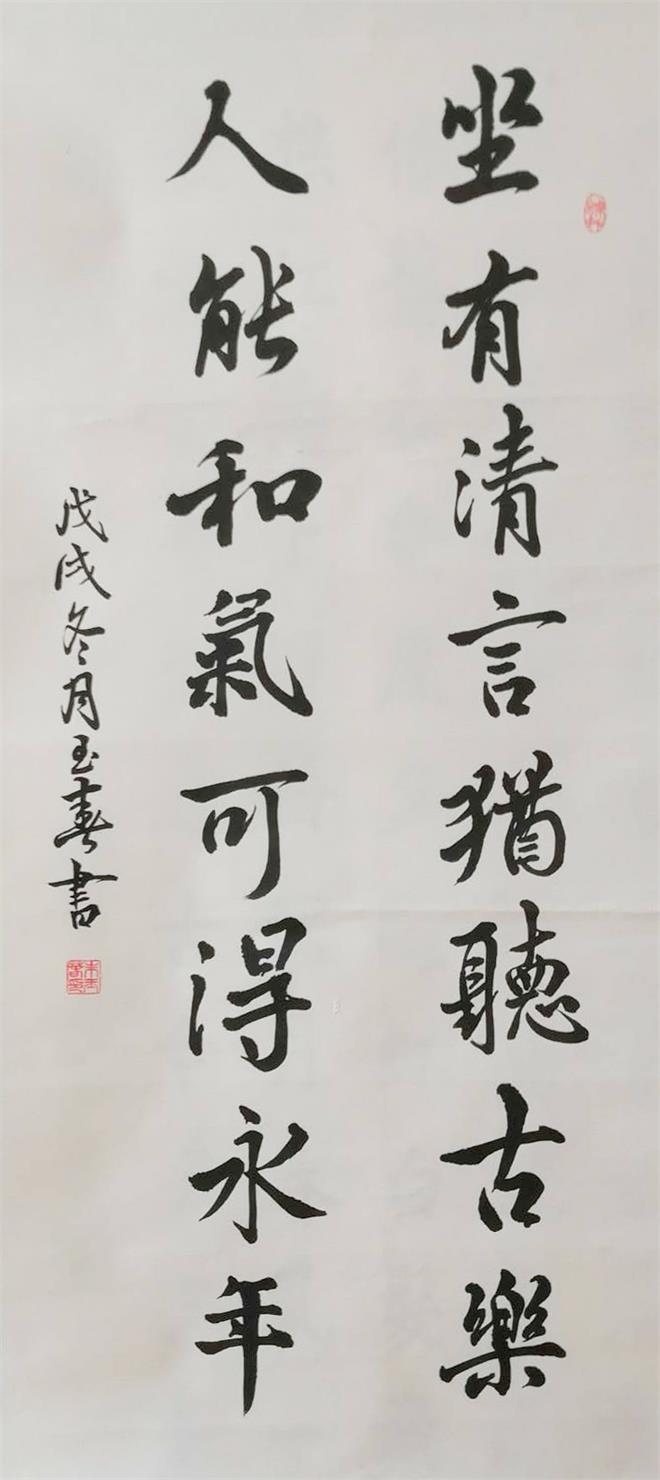 坐有清言猶聽古樂
人能和氣可得永年
戊戌冬月玉春書